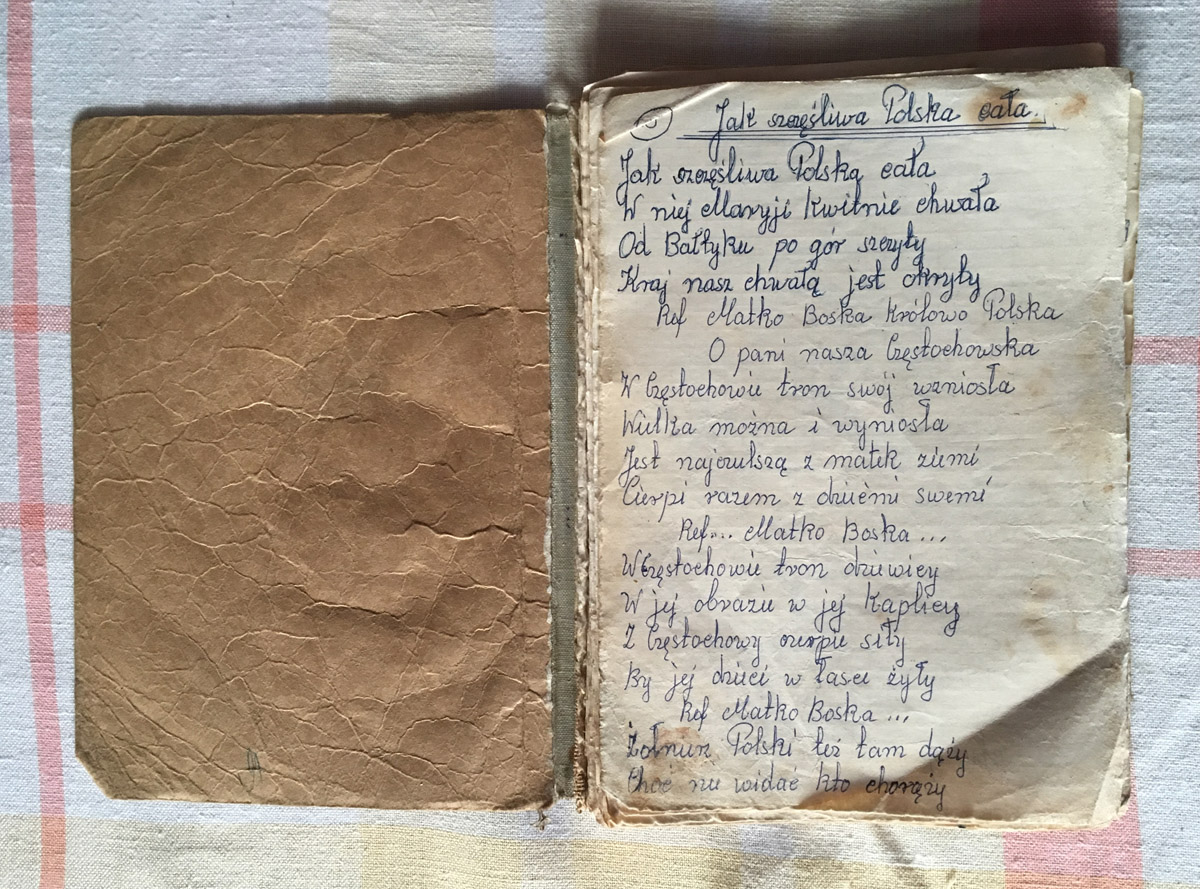 Jak szczęśliwa Polska cała.
Jak szczęśliwa Polską cała,
W niej Maryji kwitnie chwała
Od Bałtyku po gór szczyty
Kraj nasz chwałą jest okryty
Ref Matko Boska Królowo Polska
O pani nasza Częstochowska
W Częstochowie tron swój wzniosła
Wielka można i wyniosła
Jest najczulszą z matek ziemi
Cierpi razem z dziećmi swemi
Ref... Matko Boska ...
W Częstochowie tron dziewicy
W jej obrazie w jej kaplicy
Z Częstochowy czerpie siły
By jej dzieci w łasce żyły
Ref Matko Boska ...
Żołnierz Polski też tam dąży
Choć nie widać kto chorąży